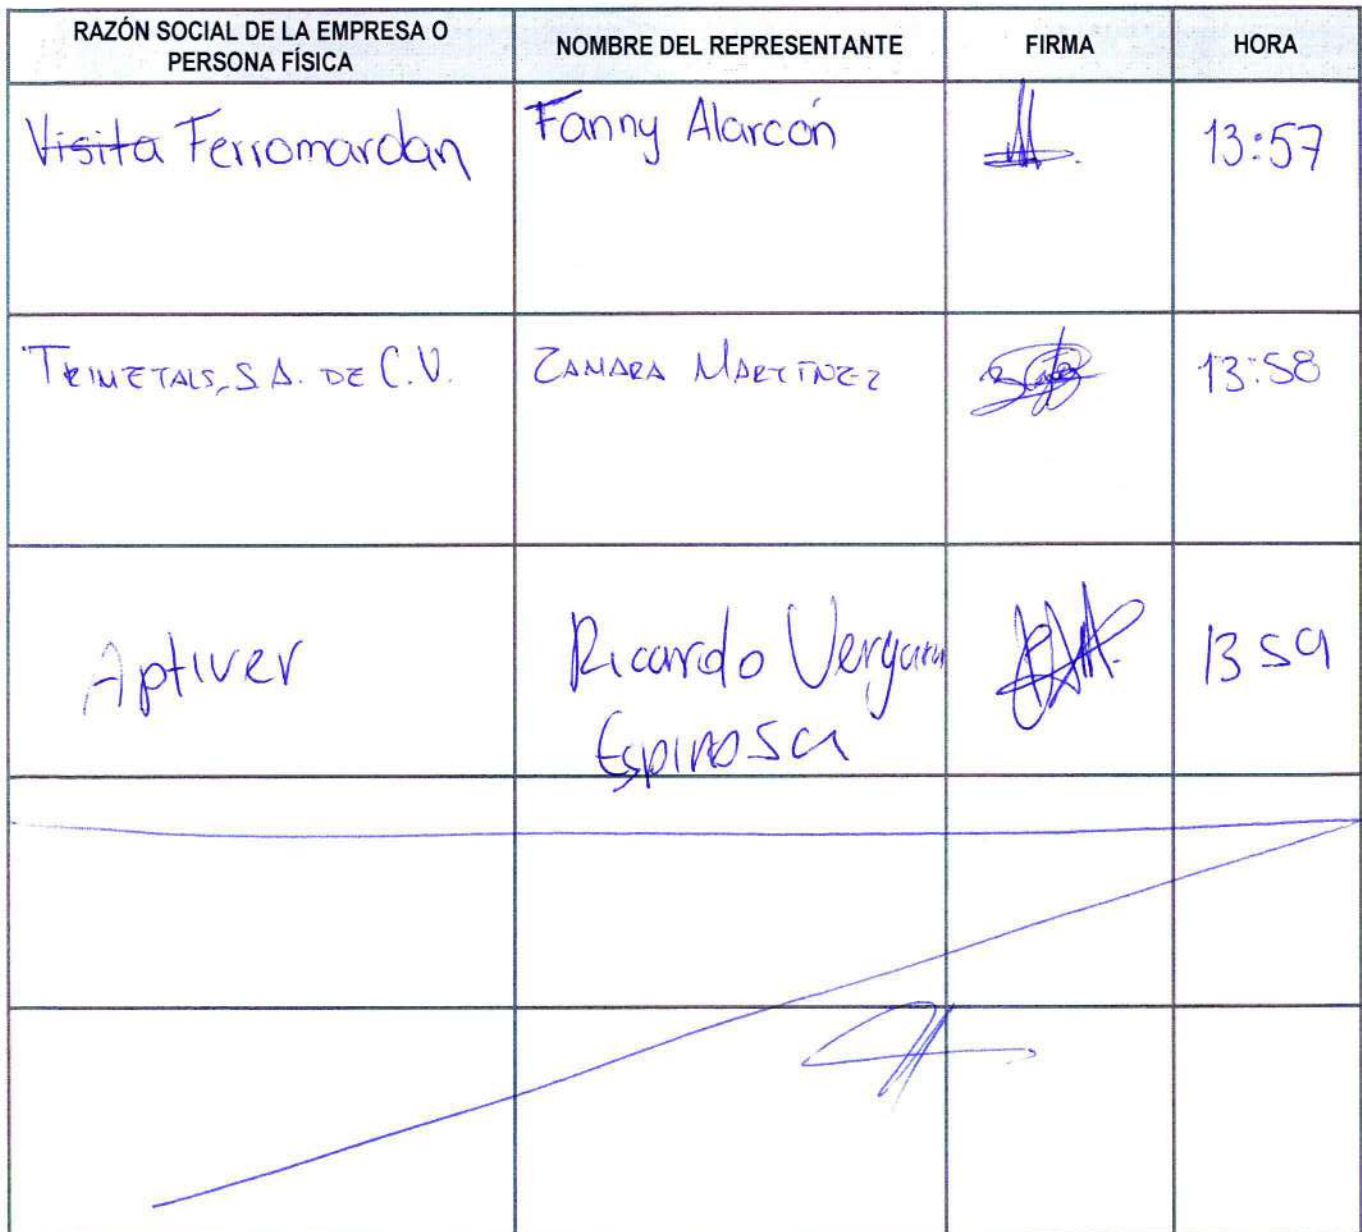 RAZÓN SOCIAL DE LA EMPRESA O
PERSONA FÍSICA
NOMBRE DEL REPRESENTANTE
FIRMA
HORA
Visita Ferromardan
Fanny Alarcón
13:57
TRIMETALS, S.A. DE C.V.
ZAMARA MARTÍNEZ
13:58
Aptiver
Ricardo Vergara
Espinosa
13 59